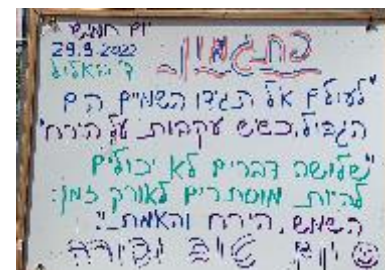 יום חמישי
29.9.2022
פתגמון
"לעולם אל תגידו השמיים הם
הגבול, כשיש עקבות על הירח"
"שלושה דברים לא יכולים
להיות מוסתרים לאורך זמן:
השמש, הירח והאמת."
יום טוב